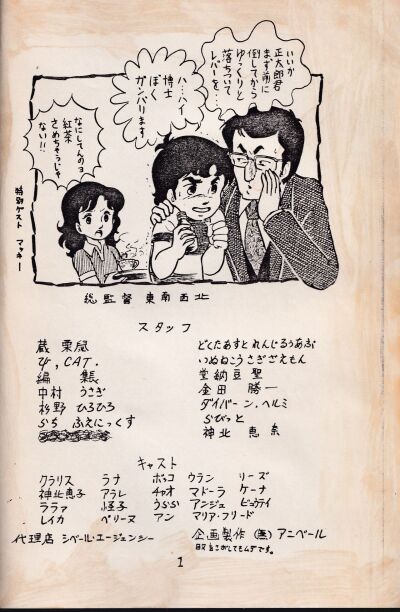 いいか
正太郎君
まず前に
倒してから
ゆっくりと
落ちついて
レバーを…
ハ…ハイ
博士
ぼく
ガンバリます
なにしてんのヨ
紅茶
さめちゃうじゃ
ない!!
特別ゲスト マッキー
総監督 東南西北
スタッフ
蔵 栗鼠
Ψ, CAT.
編 集長
中村 うさぎ
杉野 ひろひろ
らち ふえにっくす
どくたあすとれんじるうあぶ
いぬねこうさぎさぎえもん
堂納豆聖
金田 勝一
ダイバーン.ヘルミ
らびっと
神北 恵奈
キャスト
クラリス ラナ ボッコ ウラン リーズ
神北恵子 アラレ チャオ マドーラ ケーナ
ララァ 怪子 うらら アンジュ ビュウティ
レイカ ペリーヌ アン マリア・フリード
代理店 シベール・エージェンシー
企画製作 (無) アニベール
1